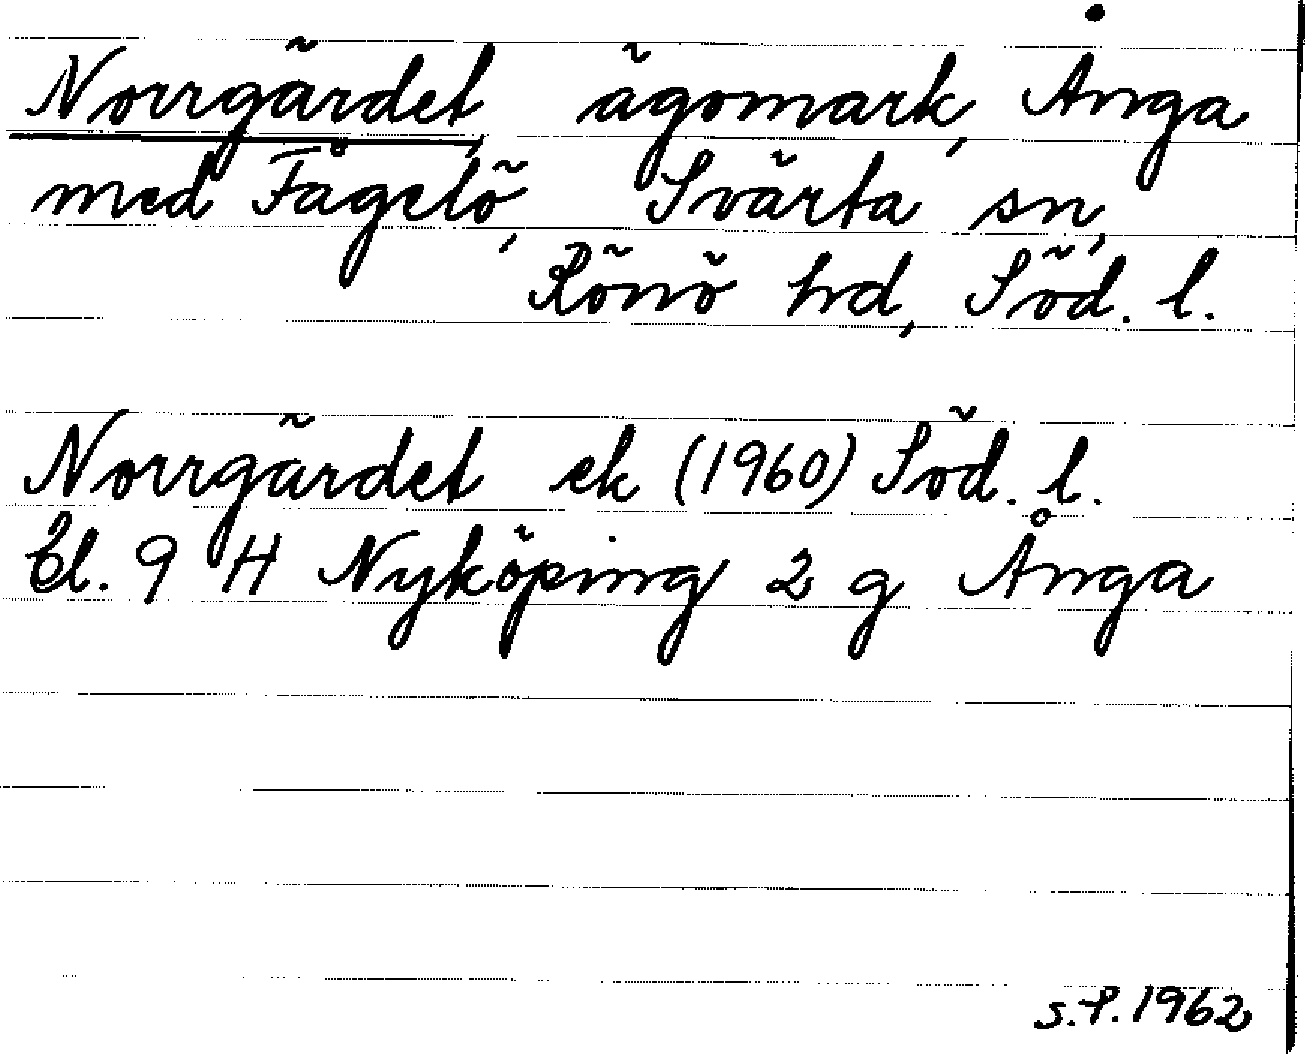 Norrgärdet, ägomark, Ånga
med Fågelö, Svärta sn,
Rönö hrd, Söd. l.
Norrgärdet ek (1960) Söd. l.
bl. 9 H Nyköping 2 g Ånga
S.P. 1962